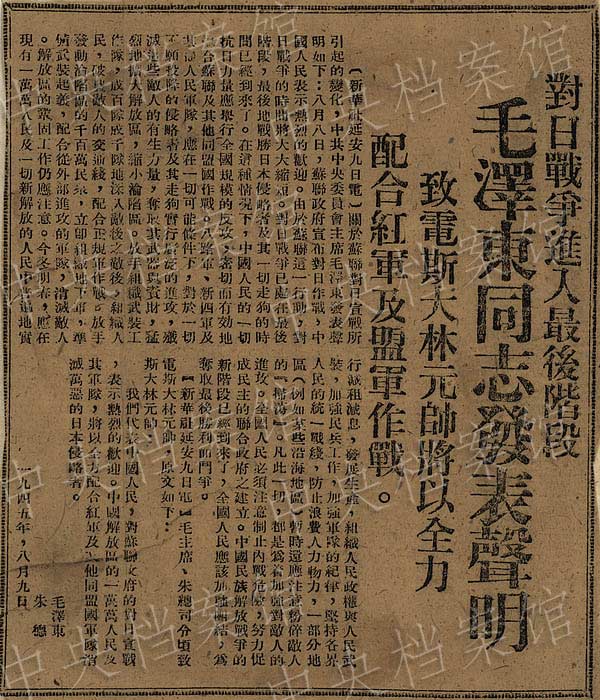 對日戰爭進入最後階段
毛澤東同志發表聲明
致電斯大林元帥將以全力
配合紅軍及盟軍作戰。
〔新華社延安九日電〕關於蘇聯對日宣戰所
引起的變化,中共中央委員會主席毛澤東發表聲
明如下:八月八日,蘇聯政府宣布對日作戰,中
國人民表示熱烈的歡迎。由於蘇聯這一行動,對
日戰爭的時間將大大縮短。對日戰爭已處在最後
階段,最後地戰勝日本侵略者及其一切走狗的時
間已經到來了。在這種情況下,中國人民的一切
抗日力量應舉行全國規模的反攻,密切而有效地
配合蘇聯及其他同盟國作戰。八路軍、新四軍及
其他人民軍隊,應在一切可能條件下,對於一切
不願投降的侵略者及其走狗實行廣泛的進攻,殲
滅這些敵人的有生力量,奪取其武器與資財,猛
烈地擴大解放區,縮小淪陷區。放手組織武裝工
作隊,成百隊成千隊地深入敵後之敵後,組織人
民,破襲敵人的交通綫,配合正規軍作戰。放手
發動淪陷區的千百萬民衆,立即組織地下軍,準
備武裝起義,配合從外部進攻的軍隊,消滅敵人
。解放區的鞏固工作仍應注意。今冬明春,應在
現有一萬萬人民及一切新解放的人民中普遍地實
行減租減息,發展生產,組織人民政權與人民武
裝,加強民兵工作,加強軍隊的紀律,堅持各界
人民的統一戰綫,防止浪費人力物力,一部分地
區(例如某些沿海地區)暫時還應注意粉碎敵人
的「掃蕩」。凡此一切,都是為着加強對敵人的
進攻。全國人民必須注意制止內戰危險,努力促
成民主的聯合政府之建立。中國民族解放戰爭的
新階段已經到來了,全國人民應該加強團結,為
奪取最後勝利而鬥爭。
【新華社延安九日電】毛主席、朱總司令頃致
電斯大林元帥,原文如下:
斯大林元帥:
我們代表中國人民,對蘇聯政府的對日宣戰
,表示熱烈的歡迎。中國解放區的一萬萬人民及
其軍隊,將以全力配合紅軍及其他同盟國軍隊消
滅萬惡的日本侵略者。
毛澤東
朱德
一九四五年,八月九日。
中央档案馆